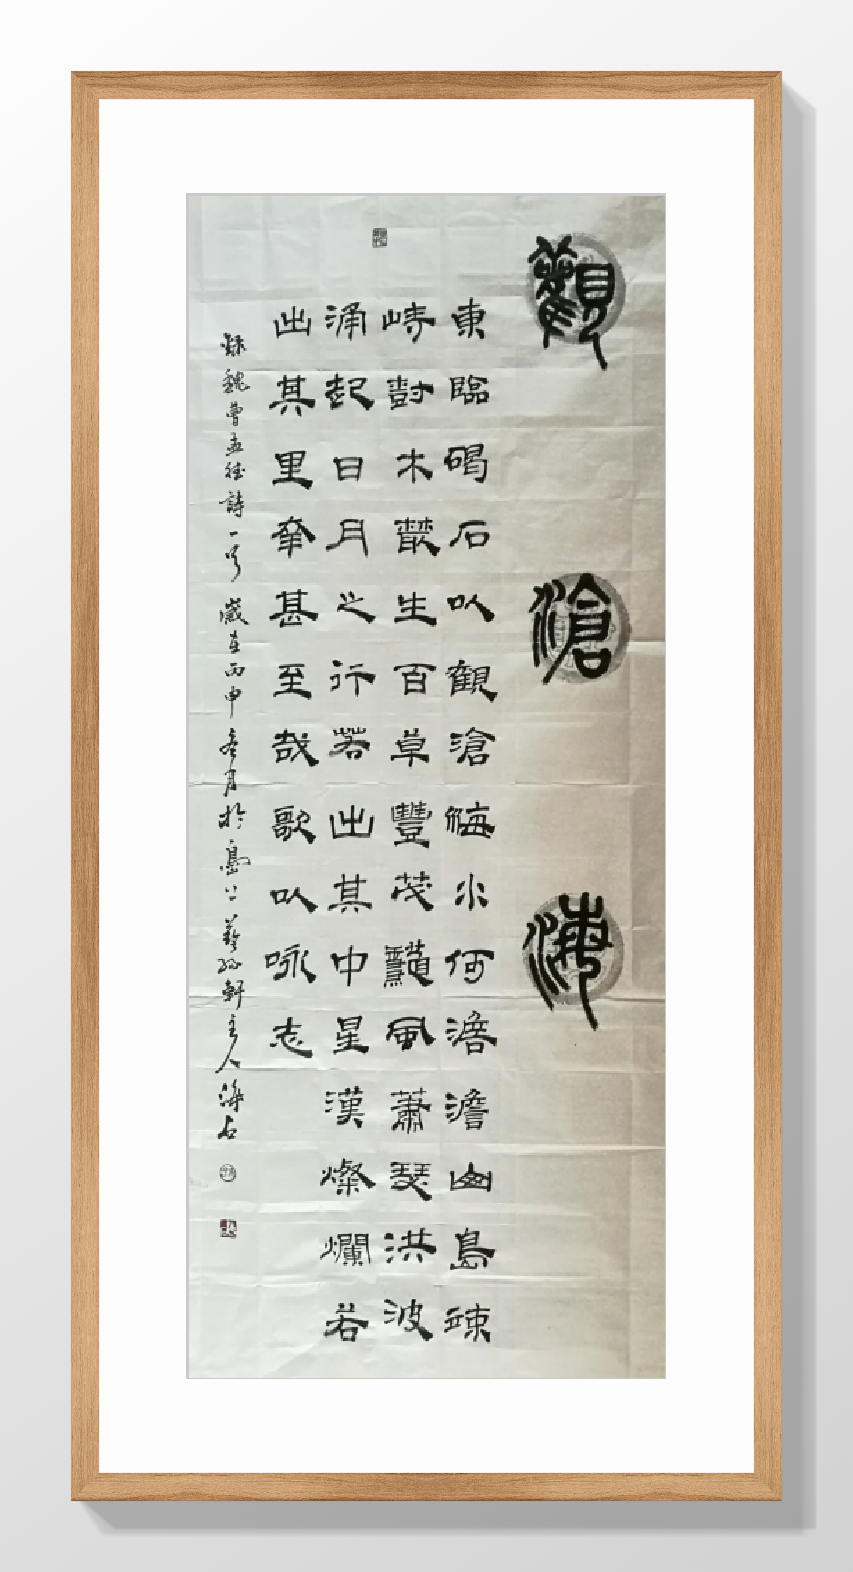 觀滄海
東臨碣石以觀滄海水何澹澹山島竦
峙尌木叢生百草豐茂龝風蕭瑟洪波
涌起日月之行若出其中星漢燦爛若
出其里幸甚至哉歌以咏志
魏曹孟德詩一首 歲在丙申冬月於島 藝軒主人海石